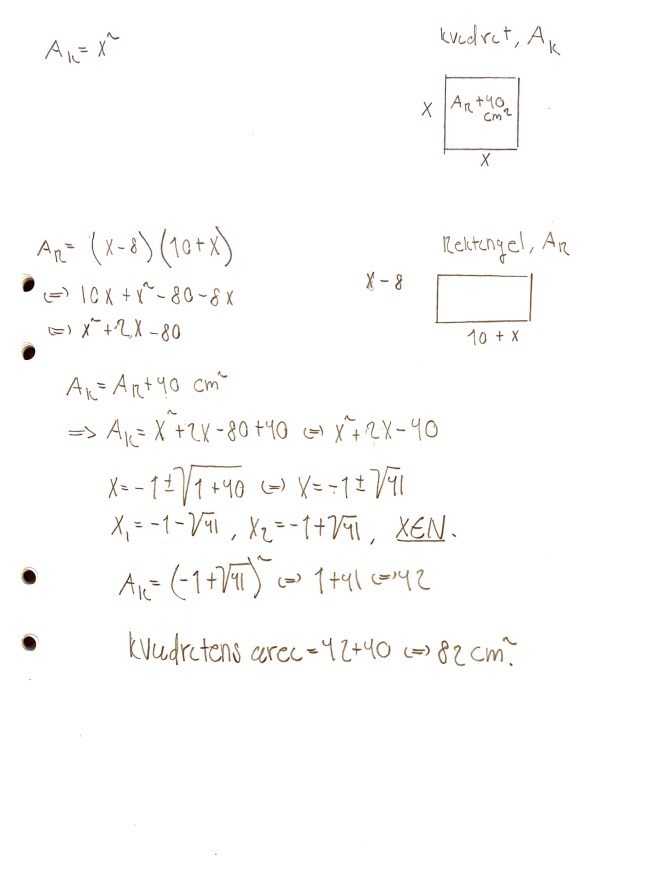 A_k = x²
kvadrat, A_k
x
A_R + 40
cm²
x
A_R = (x-8)(10+x)
Rektangel, A_R
⇔ 10x + x² - 80 - 8x
x - 8
⇔ x² + 2x - 80
10 + x
A_k = A_R + 40 cm²
⇒ A_k = x² + 2x - 80 + 40 ⇔ x² + 2x - 40
x = -1 ± √1+40 ⇔ x = -1 ± √41
x₁ = -1 - √41, x₂ = -1 + √41, x∈N.
A_k = (-1 + √41)² ⇔ 1 + 41 ⇔ 42
kvadratens area = 42 + 40 ⇔ 82 cm².